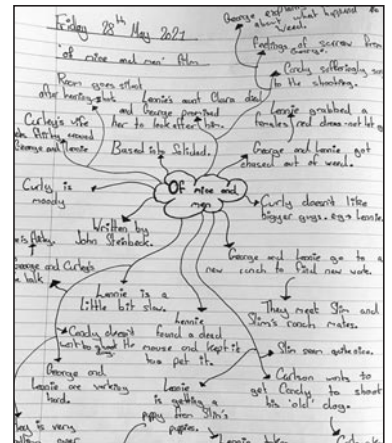 Friday 28th May 2021
'of mice and men' film
George
about what happened
weed.
feelings of sorrow from
George.
Candy
to the shooting.
Room goes silent
after hearing shot
Lennie's aunt Clara died
and George promised
her to look after him.
Lennie grabbed a
females red dress-not let go
Curley's wife
flirty around
George and Lennie
Based in Soledad.
George and Lennie got
chased out of weed.
Curly is
moody
Of mice and
men
Curly doesn't like
bigger guys. e.g. Lennie
Written by
John Steinbeck.
is flirty.
George and Curley's
talk
George and Lennie go to a
new ranch to find new work.
Lennie is a
little bit slow.
They meet Slim and
Slim's ranch mates.
Candy doesn't
want to
Lennie
found a dead
mouse and kept it
has pet it.
Slim seem quite nice.
George and
Lennie are working
hard.
Lennie
is getting a
puppy from Slim's
puppies.
Carlson wants to
get Candy, to shoot
his 'old' dog.
is very
over
Lennie